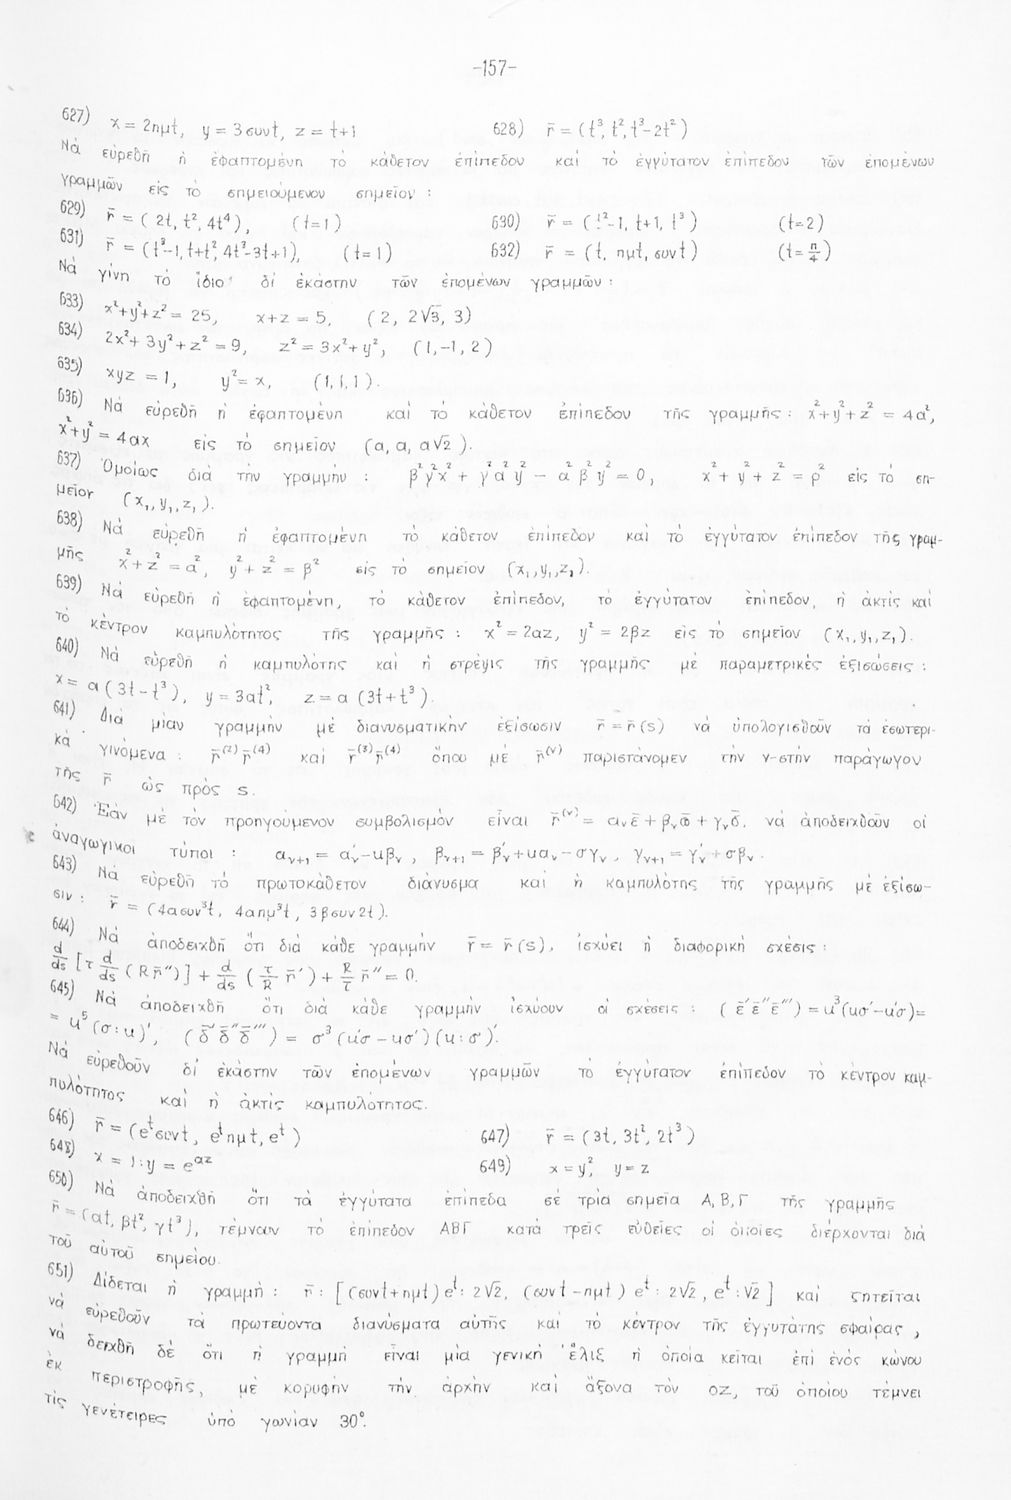 -157-
627) x = 2ημt, y = 3συνt, z = t+1 628) r̄ = (t³, t², t³-2t²)
Νὰ εὑρεθῆ ἡ ἐφαπτομένη τὸ κάθετον ἐπίπεδον καὶ τὸ ἐγγύτατον ἐπίπεδον τῶν ἑπομένων
γραμμῶν εἰς τὸ σημειούμενον σημεῖον :
629) r̄ = (2t, t², 4t⁴), (t=1) 630) r̄ = (t²-1, t+1, t³) (t=2)
631) r̄ = (t³-1, t+t², 4t²-3t+1), (t=1) 632) r̄ = (t, ημt, συνt) (t=π/4)
Νὰ γίνη τὸ ἴδιο δι' ἑκάστην τῶν ἑπομένων γραμμῶν :
633) x²+y²+z² = 25, x+z = 5, (2, 2√3, 3)
634) 2x²+3y²+z² = 9, z² = 3x²+y², (1,-1, 2)
635) xyz = 1, y² = x, (1,1,1).
636) Νὰ εὑρεθῆ ἡ ἐφαπτομένη καὶ τὸ κάθετον ἐπίπεδον τῆς γραμμῆς : x²+y²+z² = 4α²,
x²+y² = 4αx εἰς τὸ σημεῖον (α, α, α√2).
637) Ὁμοίως διὰ τὴν γραμμὴν : β²γ²x² + γ²α²y² - α²β²y² = 0, x²+y²+z² = ρ² εἰς τὸ ση-
μεῖον (x₁,y₁,z₁).
638) Νὰ εὑρεθῆ ἡ ἐφαπτομένη τὸ κάθετον ἐπίπεδον καὶ τὸ ἐγγύτατον ἐπίπεδον τῆς γραμ-
μῆς x²+z² = α², y²+z² = β² εἰς τὸ σημεῖον (x₁,y₁,z₁).
639) Νὰ εὑρεθῆ ἡ ἐφαπτομένη, τὸ κάθετον ἐπίπεδον, τὸ ἐγγύτατον ἐπίπεδον, ἡ ἀκτὶς καὶ
τὸ κέντρον καμπυλότητος τῆς γραμμῆς : x² = 2αz, y² = 2βz εἰς τὸ σημεῖον (x₁,y₁,z₁).
640) Νὰ εὑρεθῆ ἡ καμπυλότης καὶ ἡ στρέψις τῆς γραμμῆς μὲ παραμετρικὲς ἐξισώσεις :
x = α(3t-t³), y = 3αt², z = α(3t+t³).
641) Διὰ μίαν γραμμὴν μὲ διανυσματικὴν ἐξίσωσιν r̄ = r̄(s) νὰ ὑπολογισθοῦν τὰ ἐσωτερι-
κὰ γινόμενα : r̄⁽²⁾r̄⁽⁴⁾ καὶ r̄⁽³⁾r̄⁽⁴⁾ ὅπου μὲ r̄⁽ᵛ⁾ παριστάνομεν τὴν ν-στὴν παράγωγον
τῆς r̄ ὡς πρὸς s.
642) Ἐὰν μὲ τὸν προηγούμενον συμβολισμὸν εἶναι r̄⁽ᵛ⁾ = α_ν ε̄ + β_ν ω̄ + γ_ν δ̄, νὰ ἀποδειχθοῦν οἱ
ἀναγωγικοὶ τύποι : α_ν+1 = α'_ν-uβ_ν, β_ν+1 = β'_ν+uα_ν-σγ_ν, γ_ν+1 = γ'_ν+σβ_ν.
643) Νὰ εὑρεθῆ τὸ πρωτοκάθετον διάνυσμα καὶ ἡ καμπυλότης τῆς γραμμῆς μὲ ἐξίσω-
σιν : r̄ = (4ασυν³t, 4αημ³t, 3βσυν2t).
644) Νὰ ἀποδειχθῆ ὅτι διὰ κάθε γραμμὴν r̄ = r̄(s), ἰσχύει ἡ διαφορικὴ σχέσις :
d/ds [τ d/ds (R r̄″)] + d/ds (τ/R r̄′) + R/τ r̄″ = 0.
645) Νὰ ἀποδειχθῆ ὅτι διὰ κάθε γραμμὴν ἰσχύουν οἱ σχέσεις : (ε̄′ε̄″ε̄‴) = u³(uσ′-u′σ) =
= u⁵(σ:u)′, (δ̄′δ̄″δ̄‴) = σ³(u′σ-uσ′)(u:σ)′.
Νὰ εὑρεθοῦν δι' ἑκάστην τῶν ἑπομένων γραμμῶν τὸ ἐγγύτατον ἐπίπεδον τὸ κέντρον καμ-
πυλότητος καὶ ἡ ἀκτὶς καμπυλότητος.
646) r̄ = (eᵗσυνt, eᵗημt, eᵗ) 647) r̄ = (3t, 3t², 2t³)
648) x = 1:y = e^αz 649) x = y², y = z
650) Νὰ ἀποδειχθῆ ὅτι τὰ ἐγγύτατα ἐπίπεδα σὲ τρία σημεῖα Α,Β,Γ τῆς γραμμῆς
r̄ = (αt, βt², γt³), τέμνουν τὸ ἐπίπεδον ΑΒΓ κατὰ τρεῖς εὐθεῖες οἱ ὁποῖες διέρχονται διὰ
τοῦ αὐτοῦ σημείου.
651) Δίδεται ἡ γραμμὴ : r̄ : [(συνt+ημt)eᵗ : 2√2, (συνt-ημt)eᵗ : 2√2, eᵗ : √2] καὶ ζητεῖται
νὰ εὑρεθοῦν τὰ πρωτεύοντα διανύσματα αὐτῆς καὶ τὸ κέντρον τῆς ἐγγυτάτης σφαίρας,
νὰ δειχθῆ δὲ ὅτι ἡ γραμμὴ εἶναι μία γενικὴ ἕλιξ ἡ ὁποία κεῖται ἐπὶ ἑνὸς κώνου
ἐκ περιστροφῆς, μὲ κορυφὴν τὴν ἀρχὴν καὶ ἄξονα τὸν oz, τοῦ ὁποίου τέμνει
τὶς γενέτειρες ὑπὸ γωνίαν 30°.